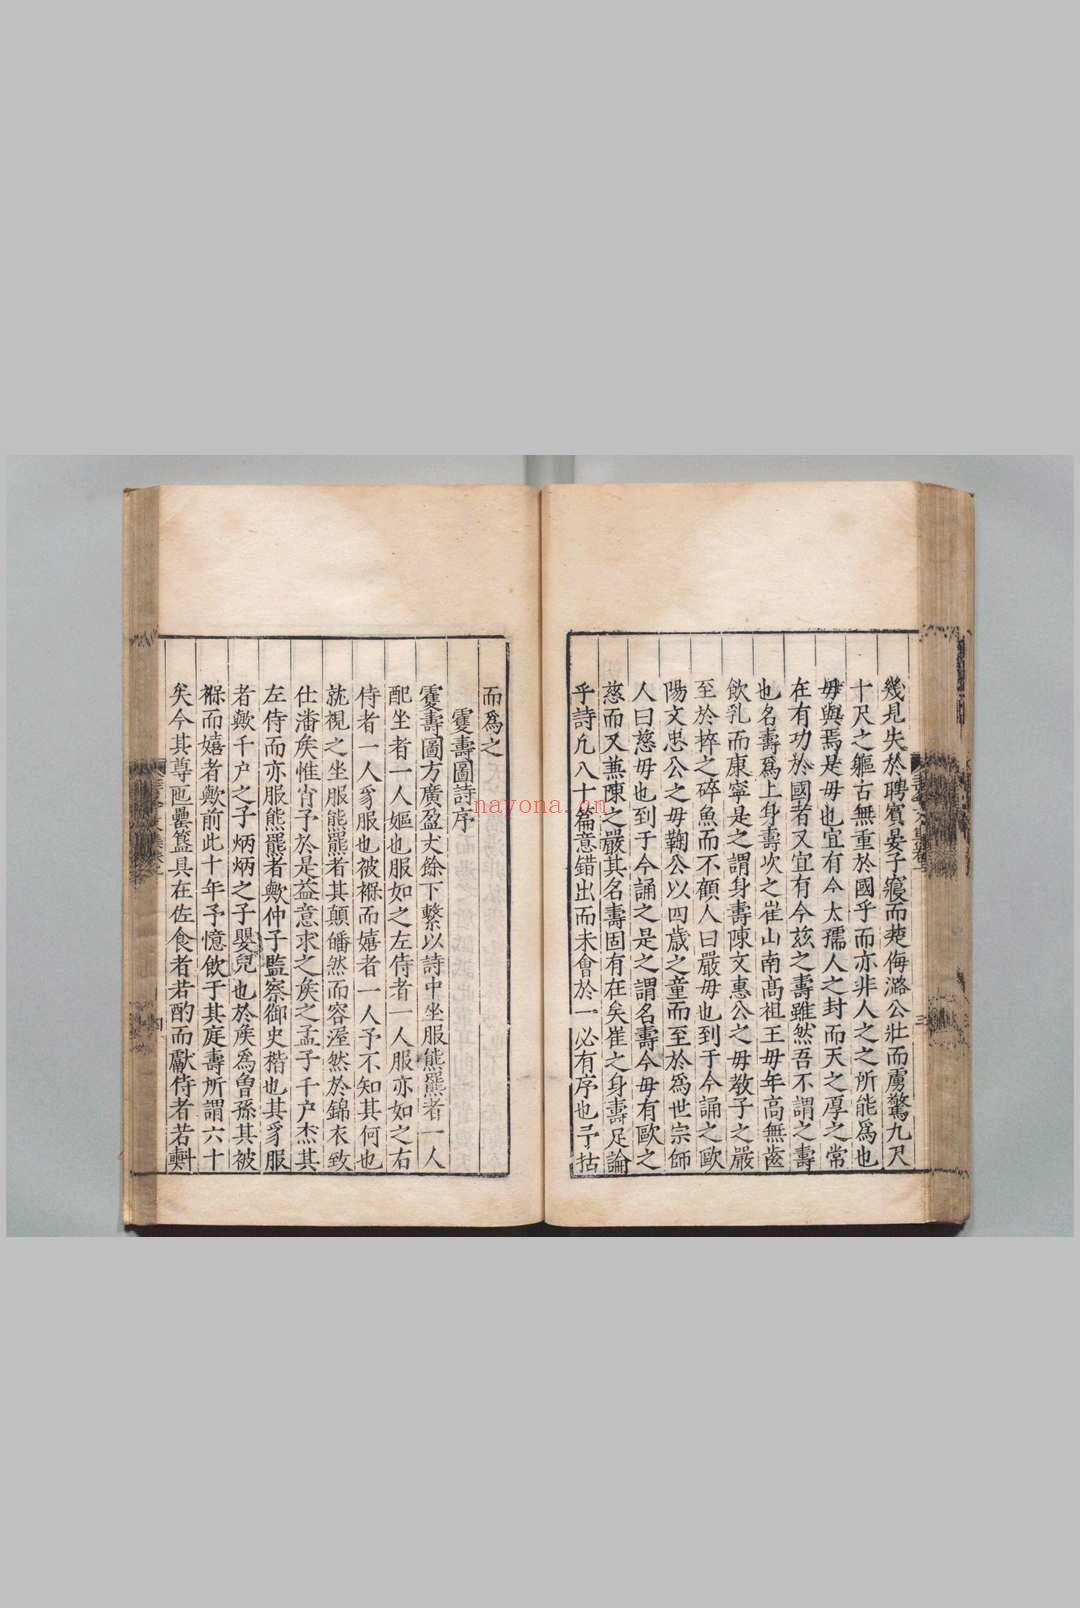 幾見失於聘賓晏子寢而楚侮潞公壯而虜驚九尺
十尺之軀古無重於國乎而亦非人之之所能爲也
毋與焉是毋也宜有今太孺人之封而天之厚之常
在有功於國者又宜有今茲之壽雖然吾不謂之壽
也名壽爲上身壽次之崔山南高祖王毋年高無齒
飲乳而康寧是之謂身壽陳文惠公之毋教子之嚴
至於捽之碎魚而不顧人曰嚴毋也到于今誦之歐
陽文忠公之毋鞠公以四歲之童而至於爲世宗師
人曰慈毋也到于今誦之是之謂名壽今毋有歐之
慈而又兼陳之嚴其名壽固有在矣崔之身壽足論
乎詩凡八十篇意錯出而未會於一必有序也予姑
而爲之
雙壽圖詩序
雙壽圖方廣盈丈餘下繫以詩中坐服熊羆者一人
配坐者一人嫗也服如之左侍者一人服亦如之右
侍者一人豸服也被褓而嬉者一人予不知其何也
就視之坐服熊羆者其顛皤然而容渥然於錦衣致
仕潘矦惟肖予於是益意求之矦之孟子千户杰其
左侍而亦服熊羆者歟仲子監察御史楷也其豸服
者歟千户之子炳炳之子嬰兒也於矦爲魯孫其被
褓而嬉者歟前此十年予憶飲于其庭壽所謂六十
矣今其尊匜罍簋具在佐食者若酌而獻侍者若㪺
nayona.cn
三
四